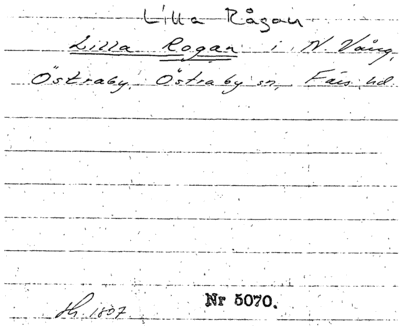 Lilla Rågan
Lilla Rogan i N. Vång,
Östraby, Östraby sn, Färs hd
sh. 1807
Nr 5070.